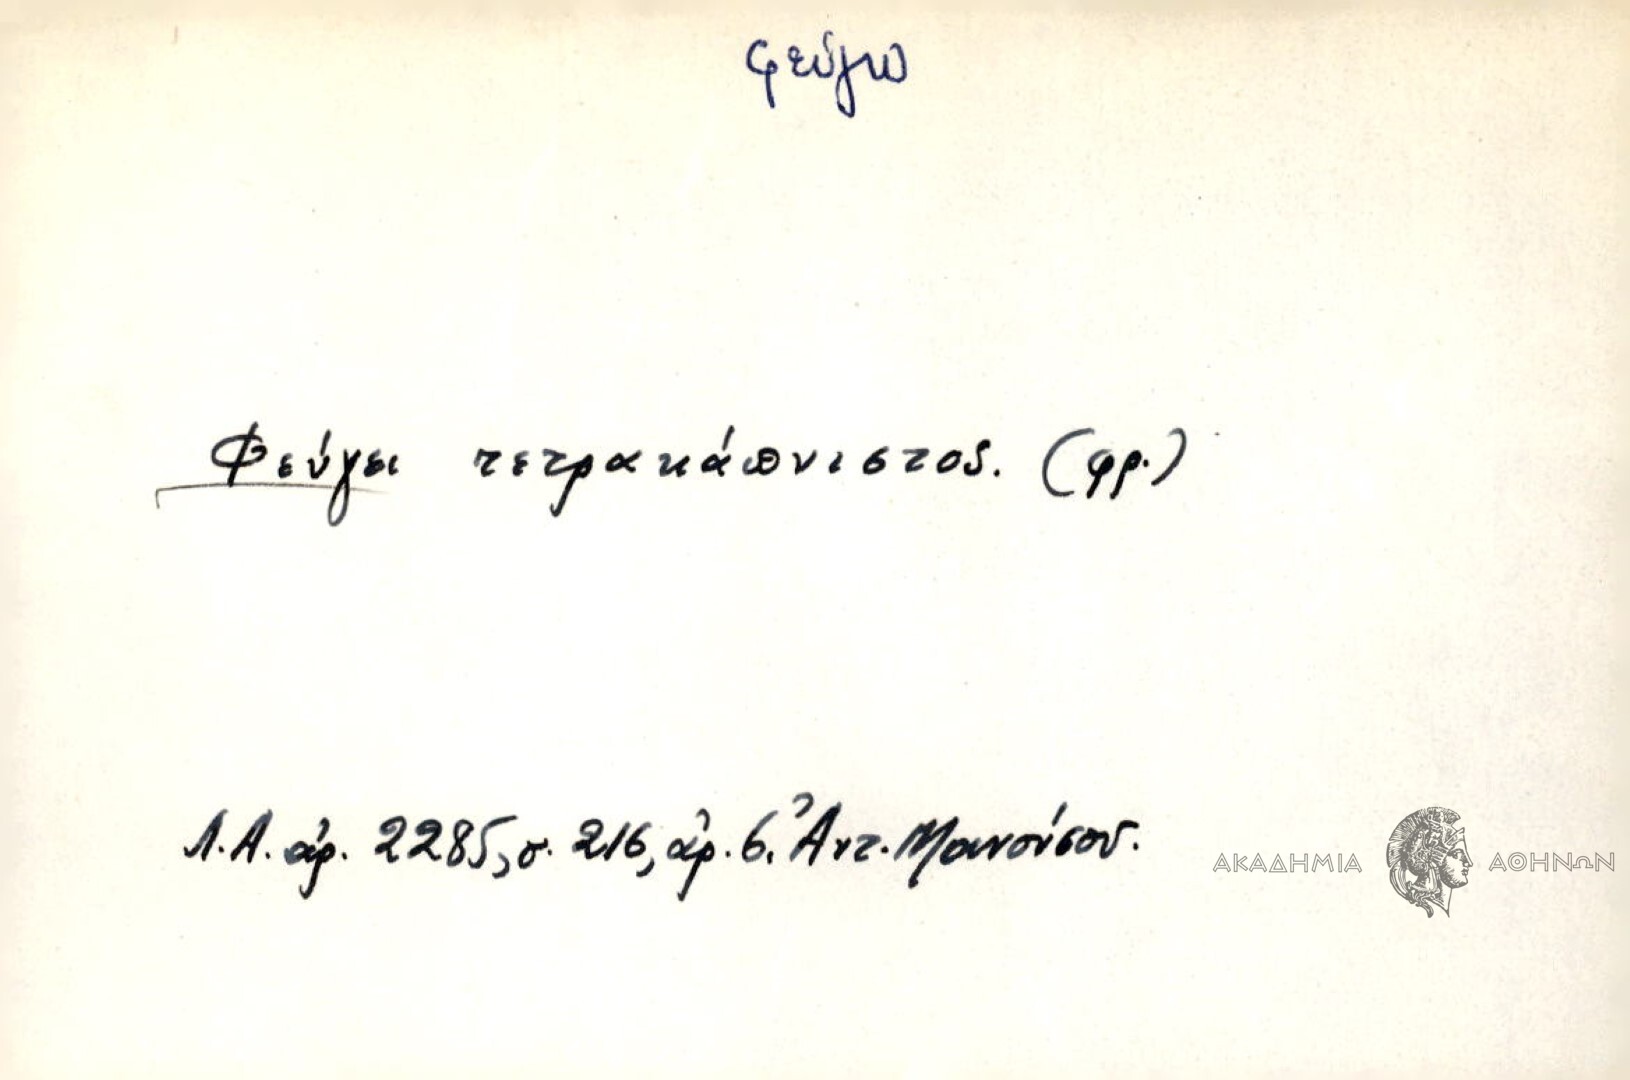 φεύγω
Φεύγει τετρακάπνιστος. (φρ.)
Λ.Α. ἀρ. 2285, σ. 216, ἀρ. 6. Ἀντ. Μανούσου.
ΑΚΑΔΗΜΙΑ ΑΘΗΝΩΝ